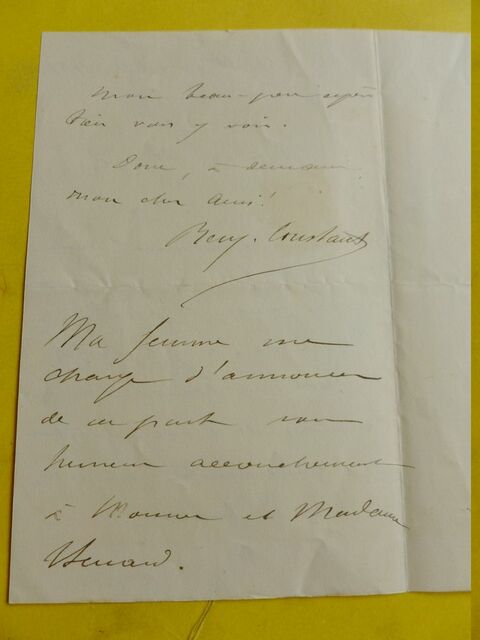 mon beau-père espère
bien vous y voir.
Donc, à demain
mon cher ami!
Benj. Constant
Ma femme me
charge d'annoncer
de sa part son
heureux accouchement
à Monsieur et Madame